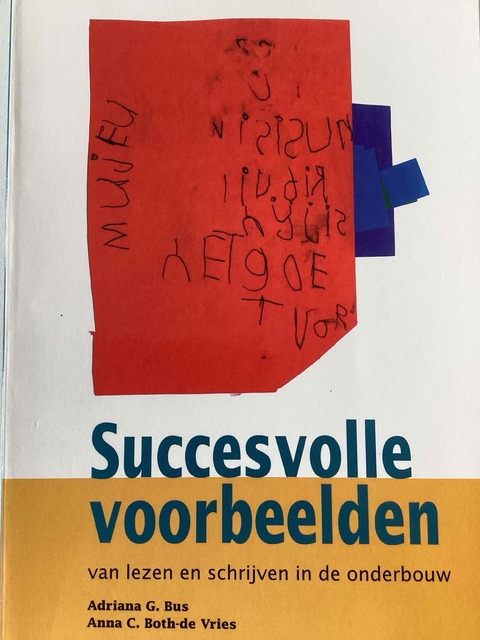 HETgOE
T VOR
Succesvolle
voorbeelden
van lezen en schrijven in de onderbouw
Adriana G. Bus
Anna C. Both-de Vries